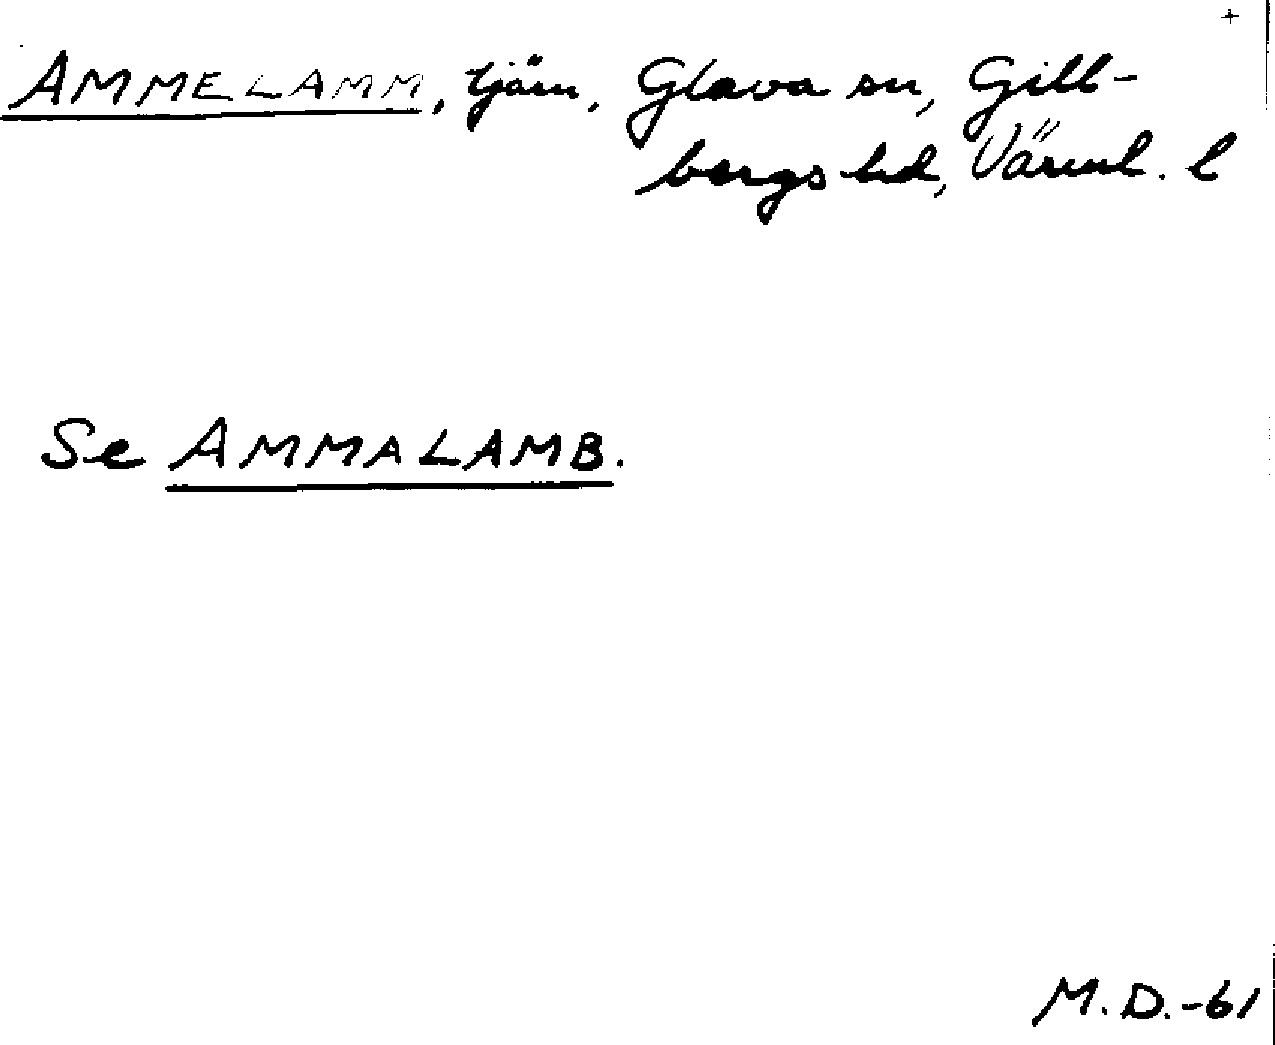 +
AMMELAMM, tjärn, Glava sn, Gill-
bergs hd, Värml. l
Se AMMALAMB.
M.D.-61